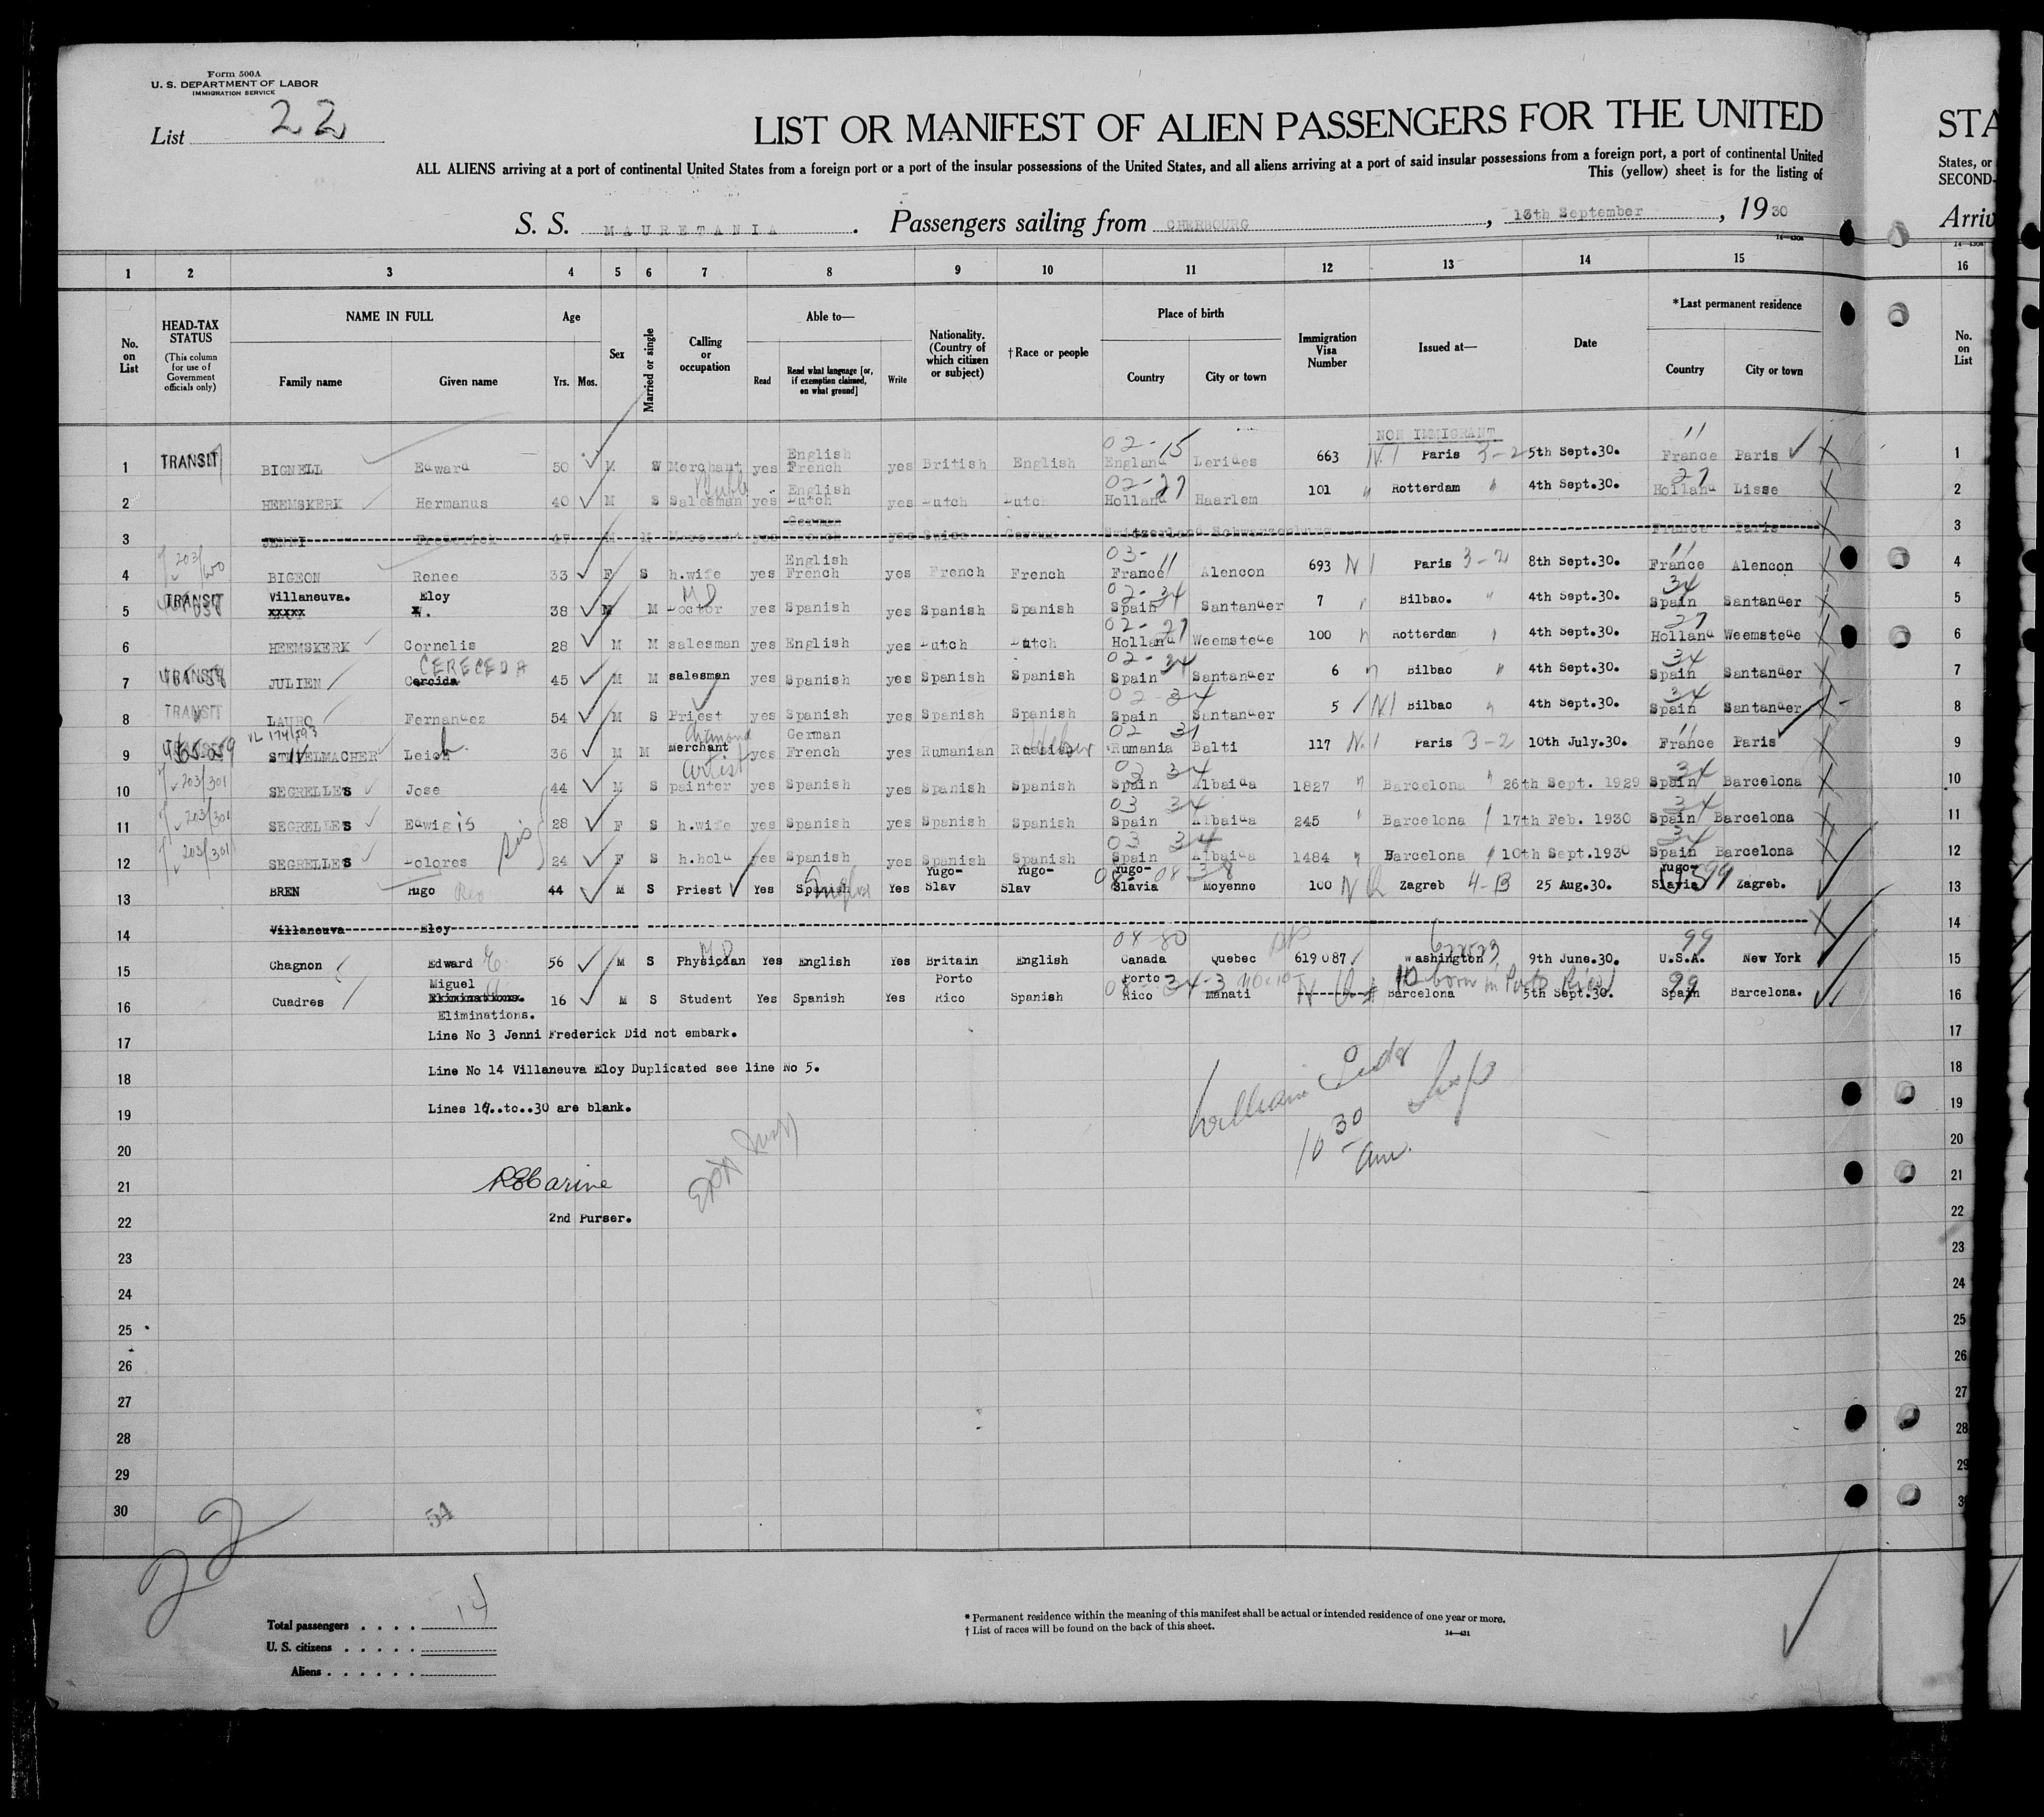 Form 500A
U. S. DEPARTMENT OF LABOR
IMMIGRATION SERVICE
List 22
LIST OR MANIFEST OF ALIEN PASSENGERS FOR THE UNITED
STA
ALL ALIENS arriving at a port of continental United States from a foreign port or a port of the insular possessions of the United States, and all aliens arriving at a port of said insular possessions from a foreign port, a port of continental United
States, or
This (yellow) sheet is for the listing of
SECOND-
S. S. MAURETANIA. Passengers sailing from CHERBOURG, 13th September, 1930
Arriv
14—430a
1 2 3 4 5 6 7 8 9 10 11 12 13 14 15 16
No. on List
HEAD-TAX STATUS
(This column for use of Government officials only)
NAME IN FULL
Family name Given name
Age
Yrs. Mos.
Sex
Married or single
Calling or occupation
Able to—
Read
Read what language [or, if exemption claimed, on what ground]
Write
Nationality. (Country of which citizen or subject)
†Race or people
Place of birth
Country City or town
Immigration Visa Number
Issued at—
Date
*Last permanent residence
Country City or town
No. on List
NON IMMIGRANT
1 TRANSIT BIGNELL Edward 50 M W Merchant yes English French yes British English 02-15 England Lerides 663 N.I Paris 3-2 5th Sept.30. 11 France Paris 1
2 HEEMSKERK Hermanus 40 M S Salesman yes English Dutch yes Dutch Dutch 02-27 Holland Haarlem 101 " Rotterdam " 4th Sept.30. 27 Holland Lisse 2
3 JENNI Frederick 47 M M Merchant yes German French yes Swiss German Switzerland Schwarzenburg France Paris 3
4 203/600 BIGEON Renee 33 F S h.wife yes English French yes French French 03-11 France Alencon 693 N I Paris 3-2 8th Sept.30. 11 France Alencon 4
5 TRANSIT Villaneuva. xxxxx Eloy 38 M M MD Doctor yes Spanish yes Spanish Spanish 02-34 Spain Santander 7 " Bilbao. " 4th Sept.30. 34 Spain Santander 5
6 HEEMSKERK Cornelis 28 M M salesman yes English yes Dutch Dutch 02-27 Holland Weemstede 100 " Rotterdam " 4th Sept.30. 27 Holland Weemstede 6
7 TRANSIT JULIEN CERECEDA Cercida 45 M M salesman yes Spanish yes Spanish Spanish 02-34 Spain Santander 6 " Bilbao " 4th Sept.30. 34 Spain Santander 7
8 TRANSIT LAURO Fernandez 54 M S Priest yes Spanish yes Spanish Spanish 02 34 Spain Santander 5 N I Bilbao " 4th Sept.30. 34 Spain Santander 8
9 STIVELMACHER Leich 36 M M diamond merchant yes German French yes Rumanian Russian Hebrew 02 31 Rumania Balti 117 N.I Paris 3-2 10th July.30. 11 France Paris 9
10 203/301 SEGRELLES Jose 44 M S artist painter yes Spanish yes Spanish Spanish 03 34 Spain Albaida 1827 " Barcelona " 26th Sept. 1929 34 Spain Barcelona 10
11 203/301 SEGRELLES Edwigis 28 F S h.wife yes Spanish yes Spanish Spanish 03 34 Spain Albaida 245 " Barcelona 17th Feb. 1930 34 Spain Barcelona 11
12 203/301 SEGRELLES Dolores sis 24 F S h.hold yes Spanish yes Spanish Spanish 03 34 Spain Albaida 1484 " Barcelona 10th Sept.1930 34 Spain Barcelona 12
13 BREN Hugo Rev 44 M S Priest Yes Spanish English Yes Yugo-Slav Yugo-Slav 08-38 Yugo-Slavia Moyenne 100 N Q Zagreb 4-B 25 Aug.30. 99 Yugo-Slavia Zagreb. 13
14 Villaneuva Eloy 14
15 Chagnon Edward E 56 M S MD Physician Yes English Yes Britain English 08-80 Canada Quebec 619087. Washington 9th June.30. 99 U.S.A. New York 15
16 Cuadres Miguel Eliminations. 16 M S Student Yes Spanish Yes Porto Rico Spanish 08-34-3 Porto Rico Manati Barcelona born in Porto Rico 5th Sept.30. 99 Spain Barcelona. 16
Eliminations.
17 Line No 3 Jenni Frederick Did not embark. 17
18 Line No 14 Villaneuva Eloy Duplicated see line No 5. 18
19 Lines 17..to..30 are blank. 19
William Insp
10 30 am.
20 20
21 21
22 2nd Purser. 22
23 23
24 24
25 25
26 26
27 27
28 28
29 29
30 54 3
22
Total passengers . . . . 14
U. S. citizens . . . . .
Aliens . . . . . .
* Permanent residence within the meaning of this manifest shall be actual or intended residence of one year or more.
† List of races will be found on the back of this sheet.
14—431